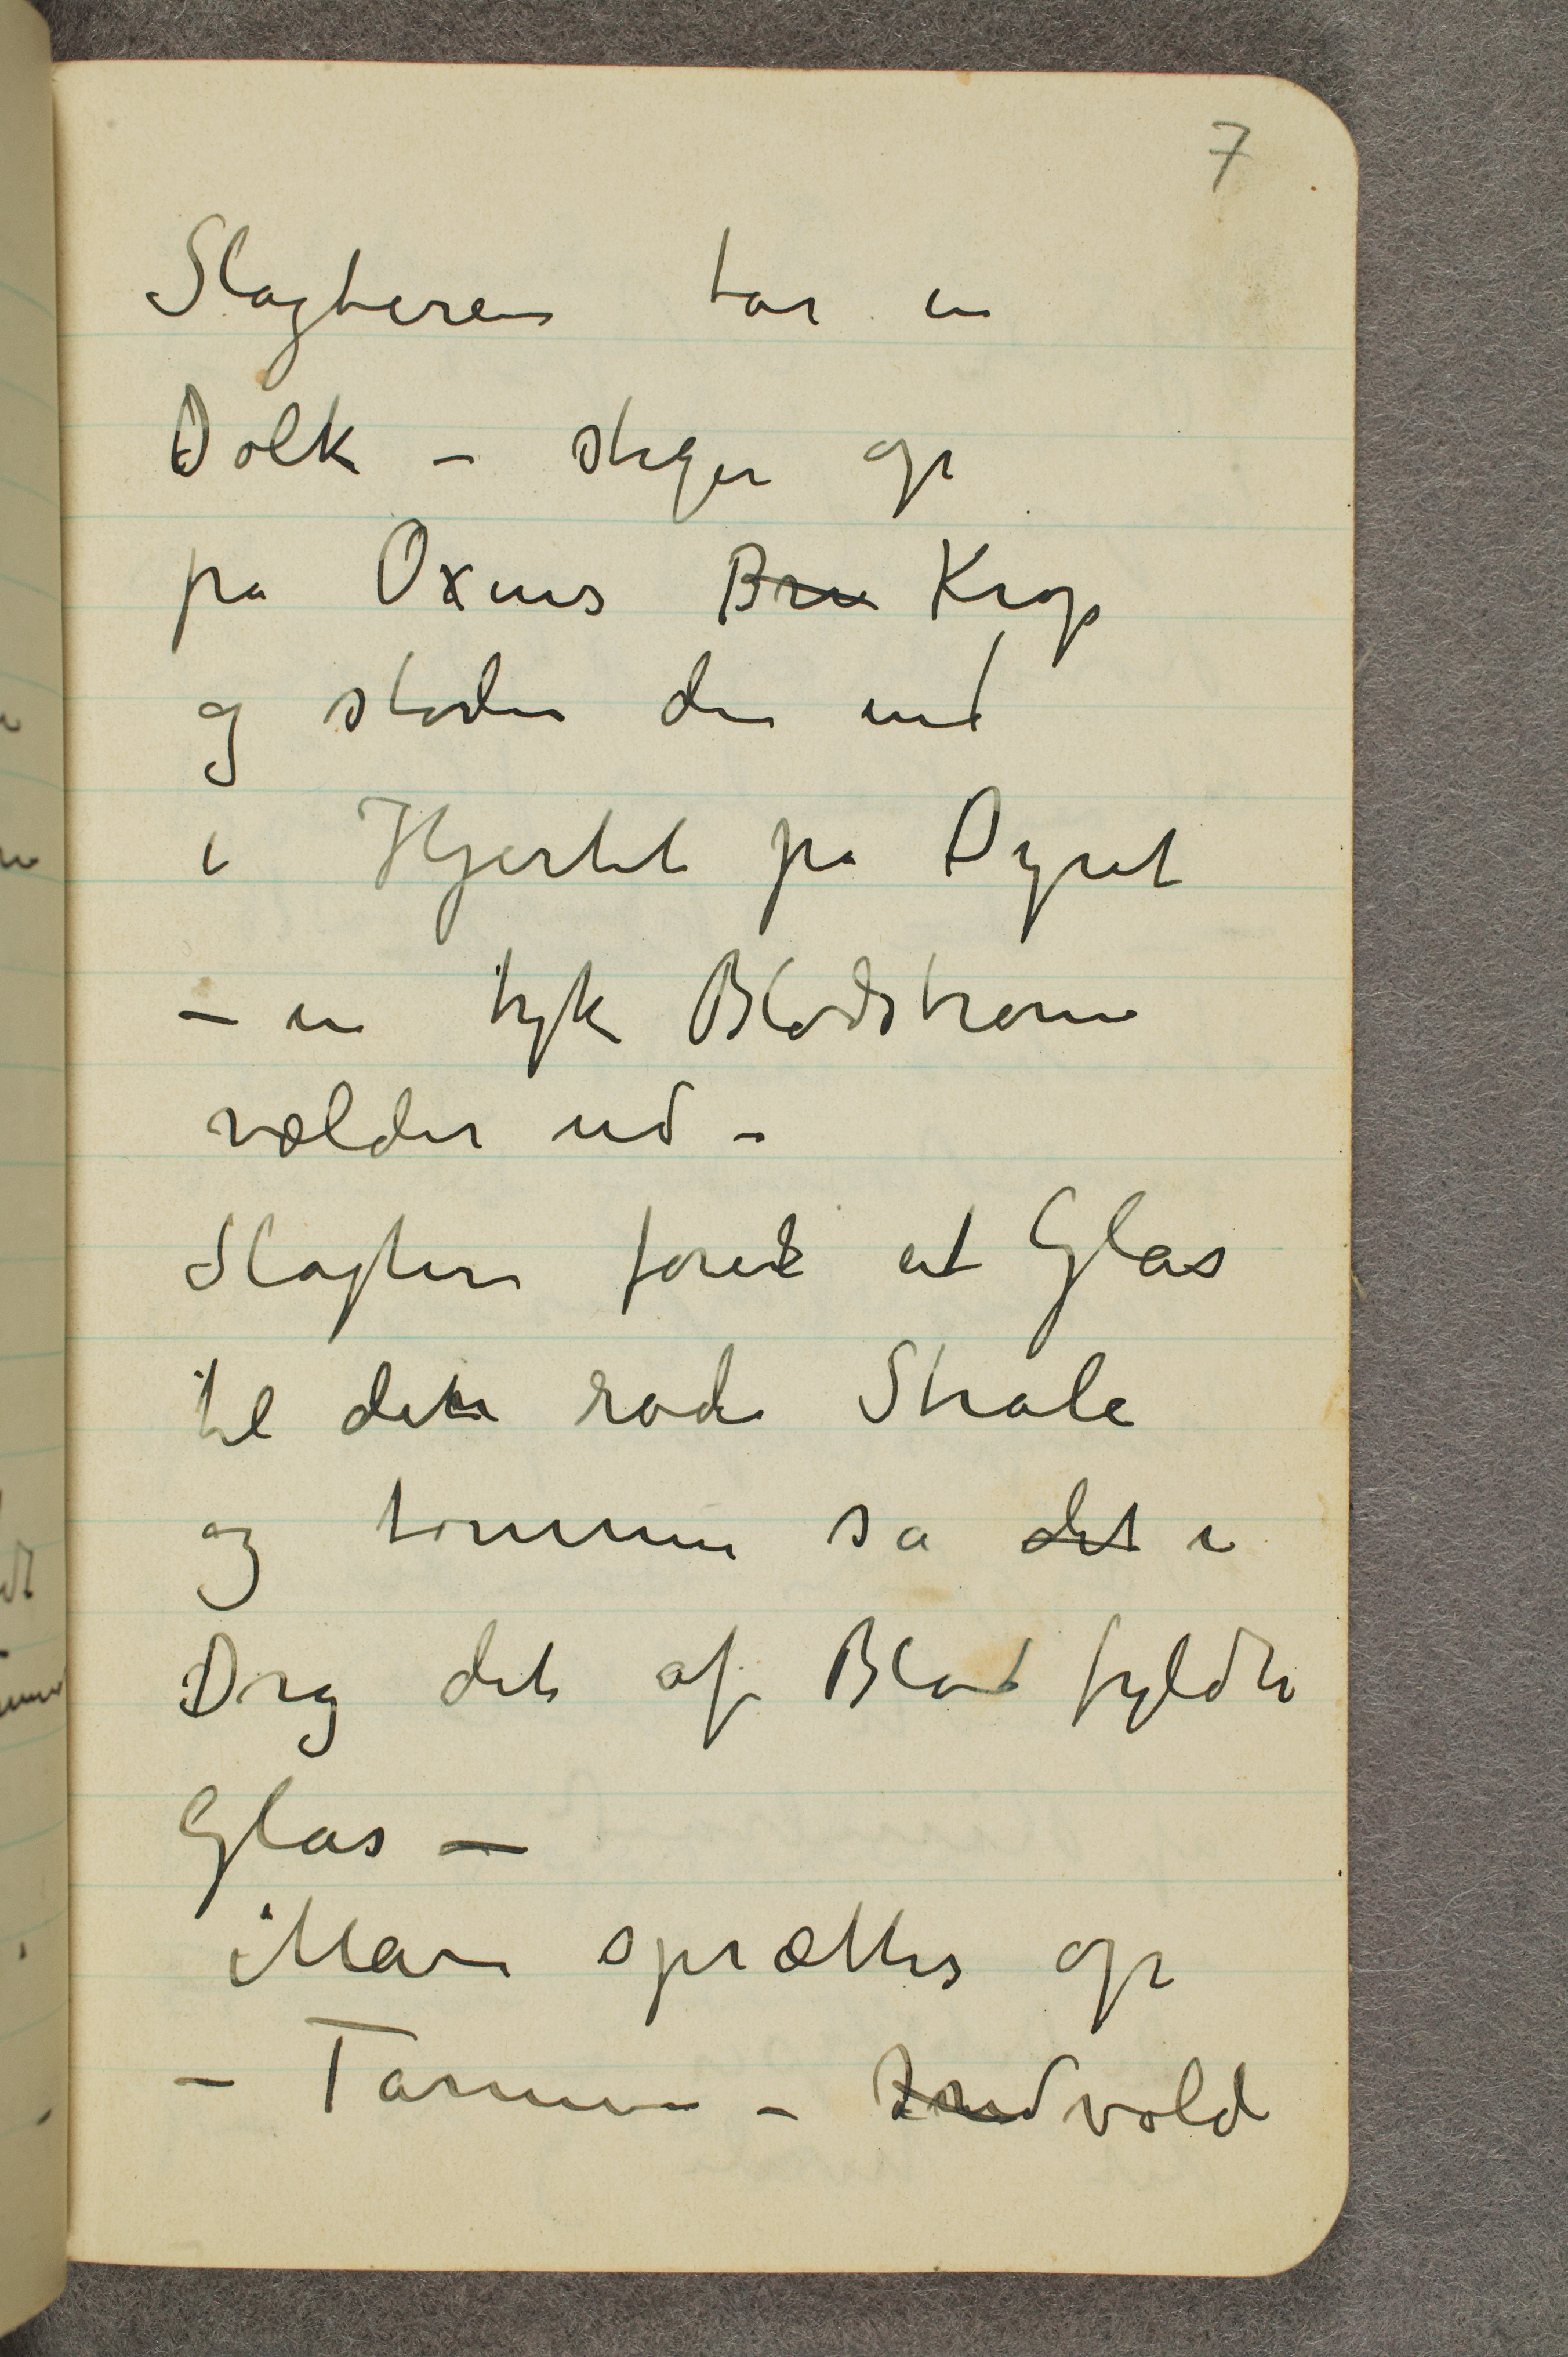 7
Slagteren tar en
Dolk – stiger op
på Oxens Bru Krop
og støder den ind
i Hjertet på Dyret
– en tyk Blodstrøm
vælder ud –
Slagteren fører et Glas
til den røde Stråle
og tømmer så det i
Drag det af Blod fyldte
Glas —
Maven sprættes op
– Tarmene – Indvold